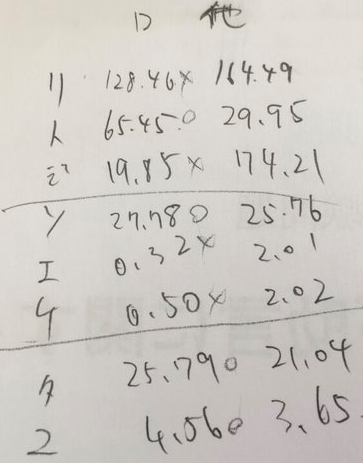 D 他
リ 128.46× 164.49
人 65.45○ 29.95
ミ 19.85× 174.21
ソ 27.78○ 25.76
エ 0.32× 2.01
4 0.50× 2.02
タ 25.79○ 21.04
2 4.06○ 3.65